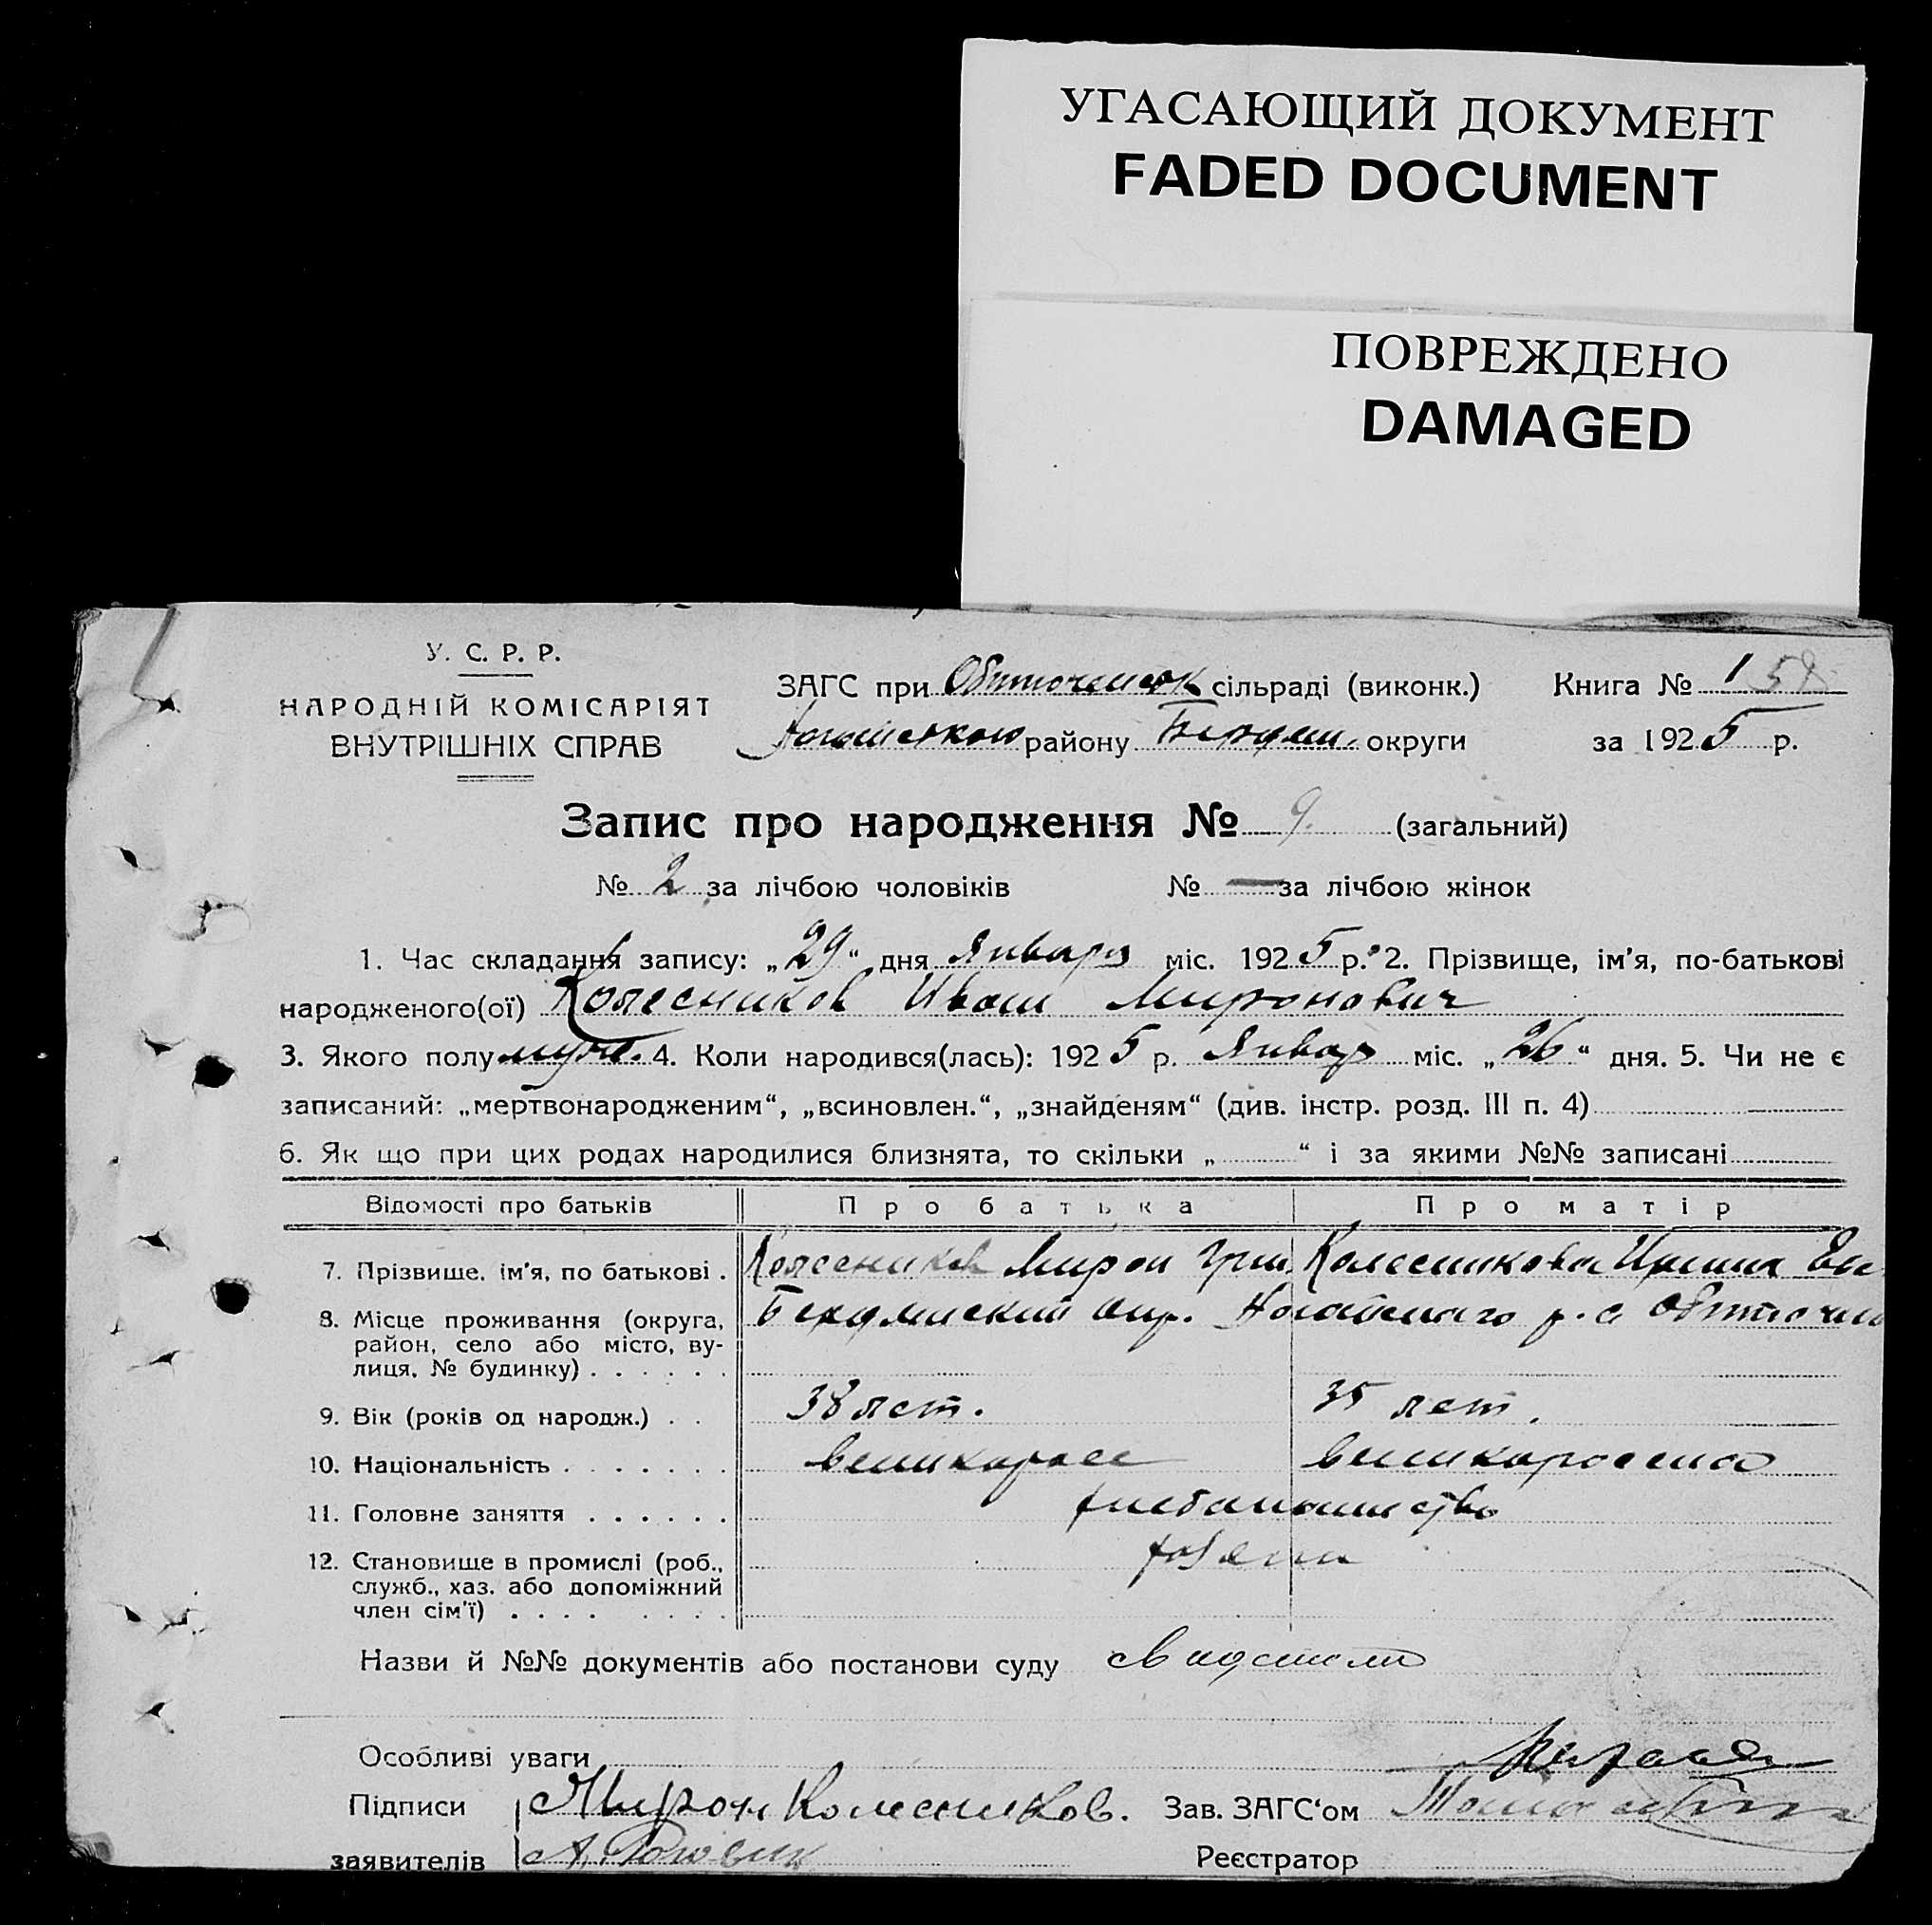 УГАСАЮЩИЙ ДОКУМЕНТ
FADED DOCUMENT
ПОВРЕЖДЕНО
DAMAGED
У. С. Р. Р.
НАРОДНІЙ КОМІСАРІЯТ
ВНУТРІШНІХ СПРАВ
ЗАГС при Обиточенск сільраді (виконк.)
Ногайского району Бердян. округи
Книга № 1 58
за 1925 р.
Запис про народження № 9. (загальний)
№ 2 за лічбою чоловіків № — за лічбою жінок
1. Час складання запису: „29“ дня Января міс. 1925 р. 2. Прізвище, ім’я, по-батькові
народженого(ої) Колесников Иван Миронович
3. Якого полу муж. 4. Коли народився(лась): 1925 р. Январ міс. „26“ дня. 5. Чи не є
записаний: „мертвонародженим“, „всиновлен.“, „знайденям“ (див. інстр. розд. III п. 4)
6. Як що при цих родах народилися близнята, то скільки „ “ і за якими №№ записані
Відомості про батьків Про батька Про матір
7. Прізвище, ім’я, по батькові . Колесников Мирон Григ. Колесникова Ирина
8. Місце проживання (округа, район, село або місто, вулиця, № будинку) . . . . . . Бердянский окр. Ногайского р. с Обиточн
9. Вік (років од народж.) . . 38 лет. 35 лет.
10. Національність . . . . . . . великоросс великоросска
11. Головне заняття . . . . . . хлебопашество
12. Становище в промислі (роб., служб., хаз. або допоміжний член сім’ї) . . . . . . . . хозяин
Назви й №№ документів або постанови суду
Особливі уваги
Підписи Мирон Колесников. Зав. ЗАГС‘ом
заявителів Реєстратор